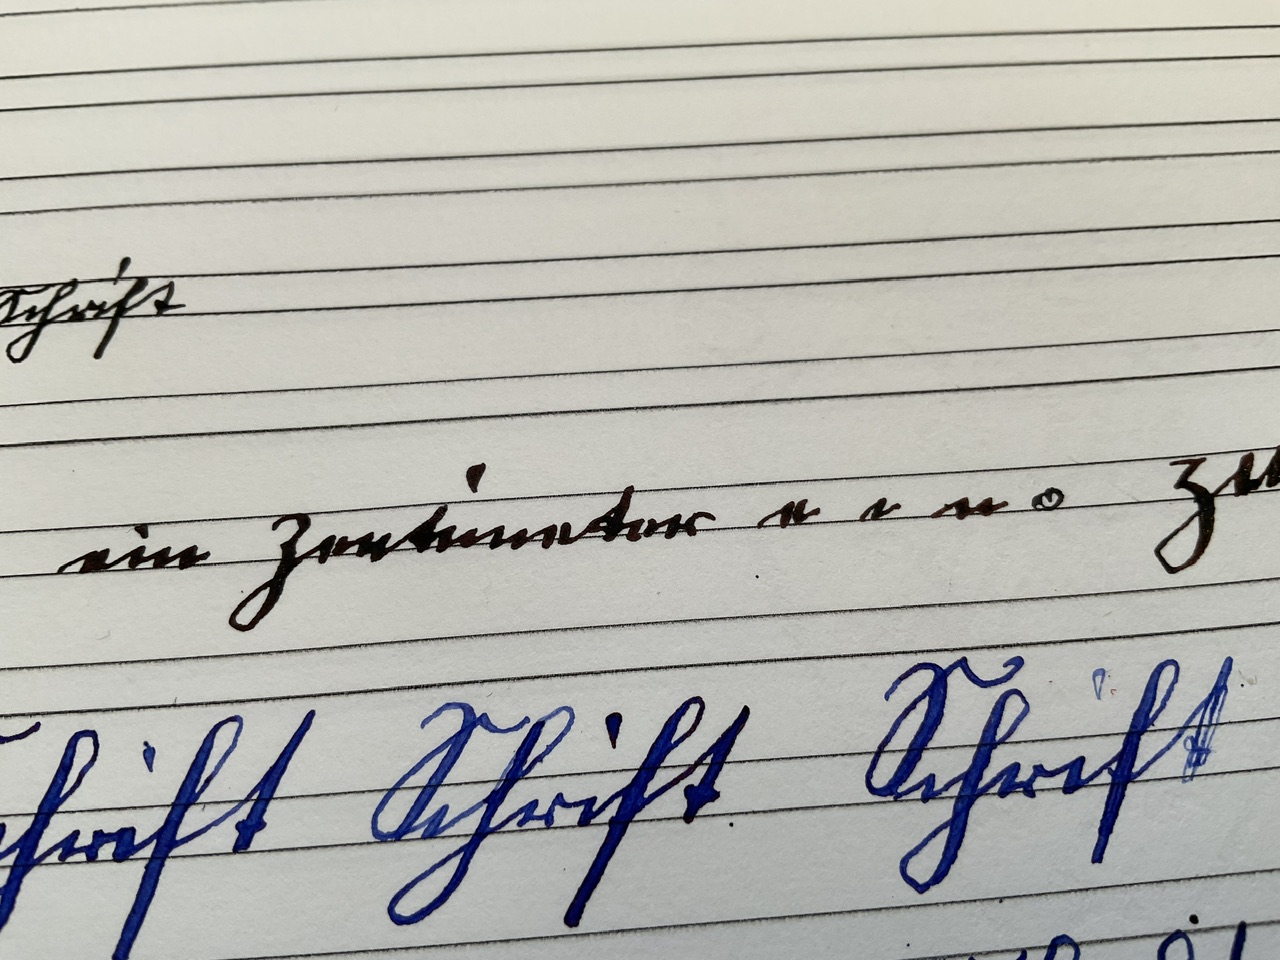 Schrift
ein Zentimeter e e n
Schrift Schrift Schrift